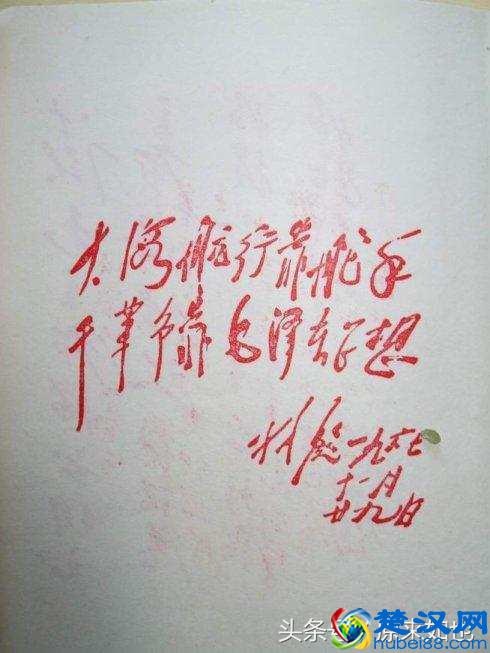 大海航行靠舵手
干革命靠毛泽东思想
林彪一九六七
十一月
廿九日
头条号
楚汉网
www.hubei88.com